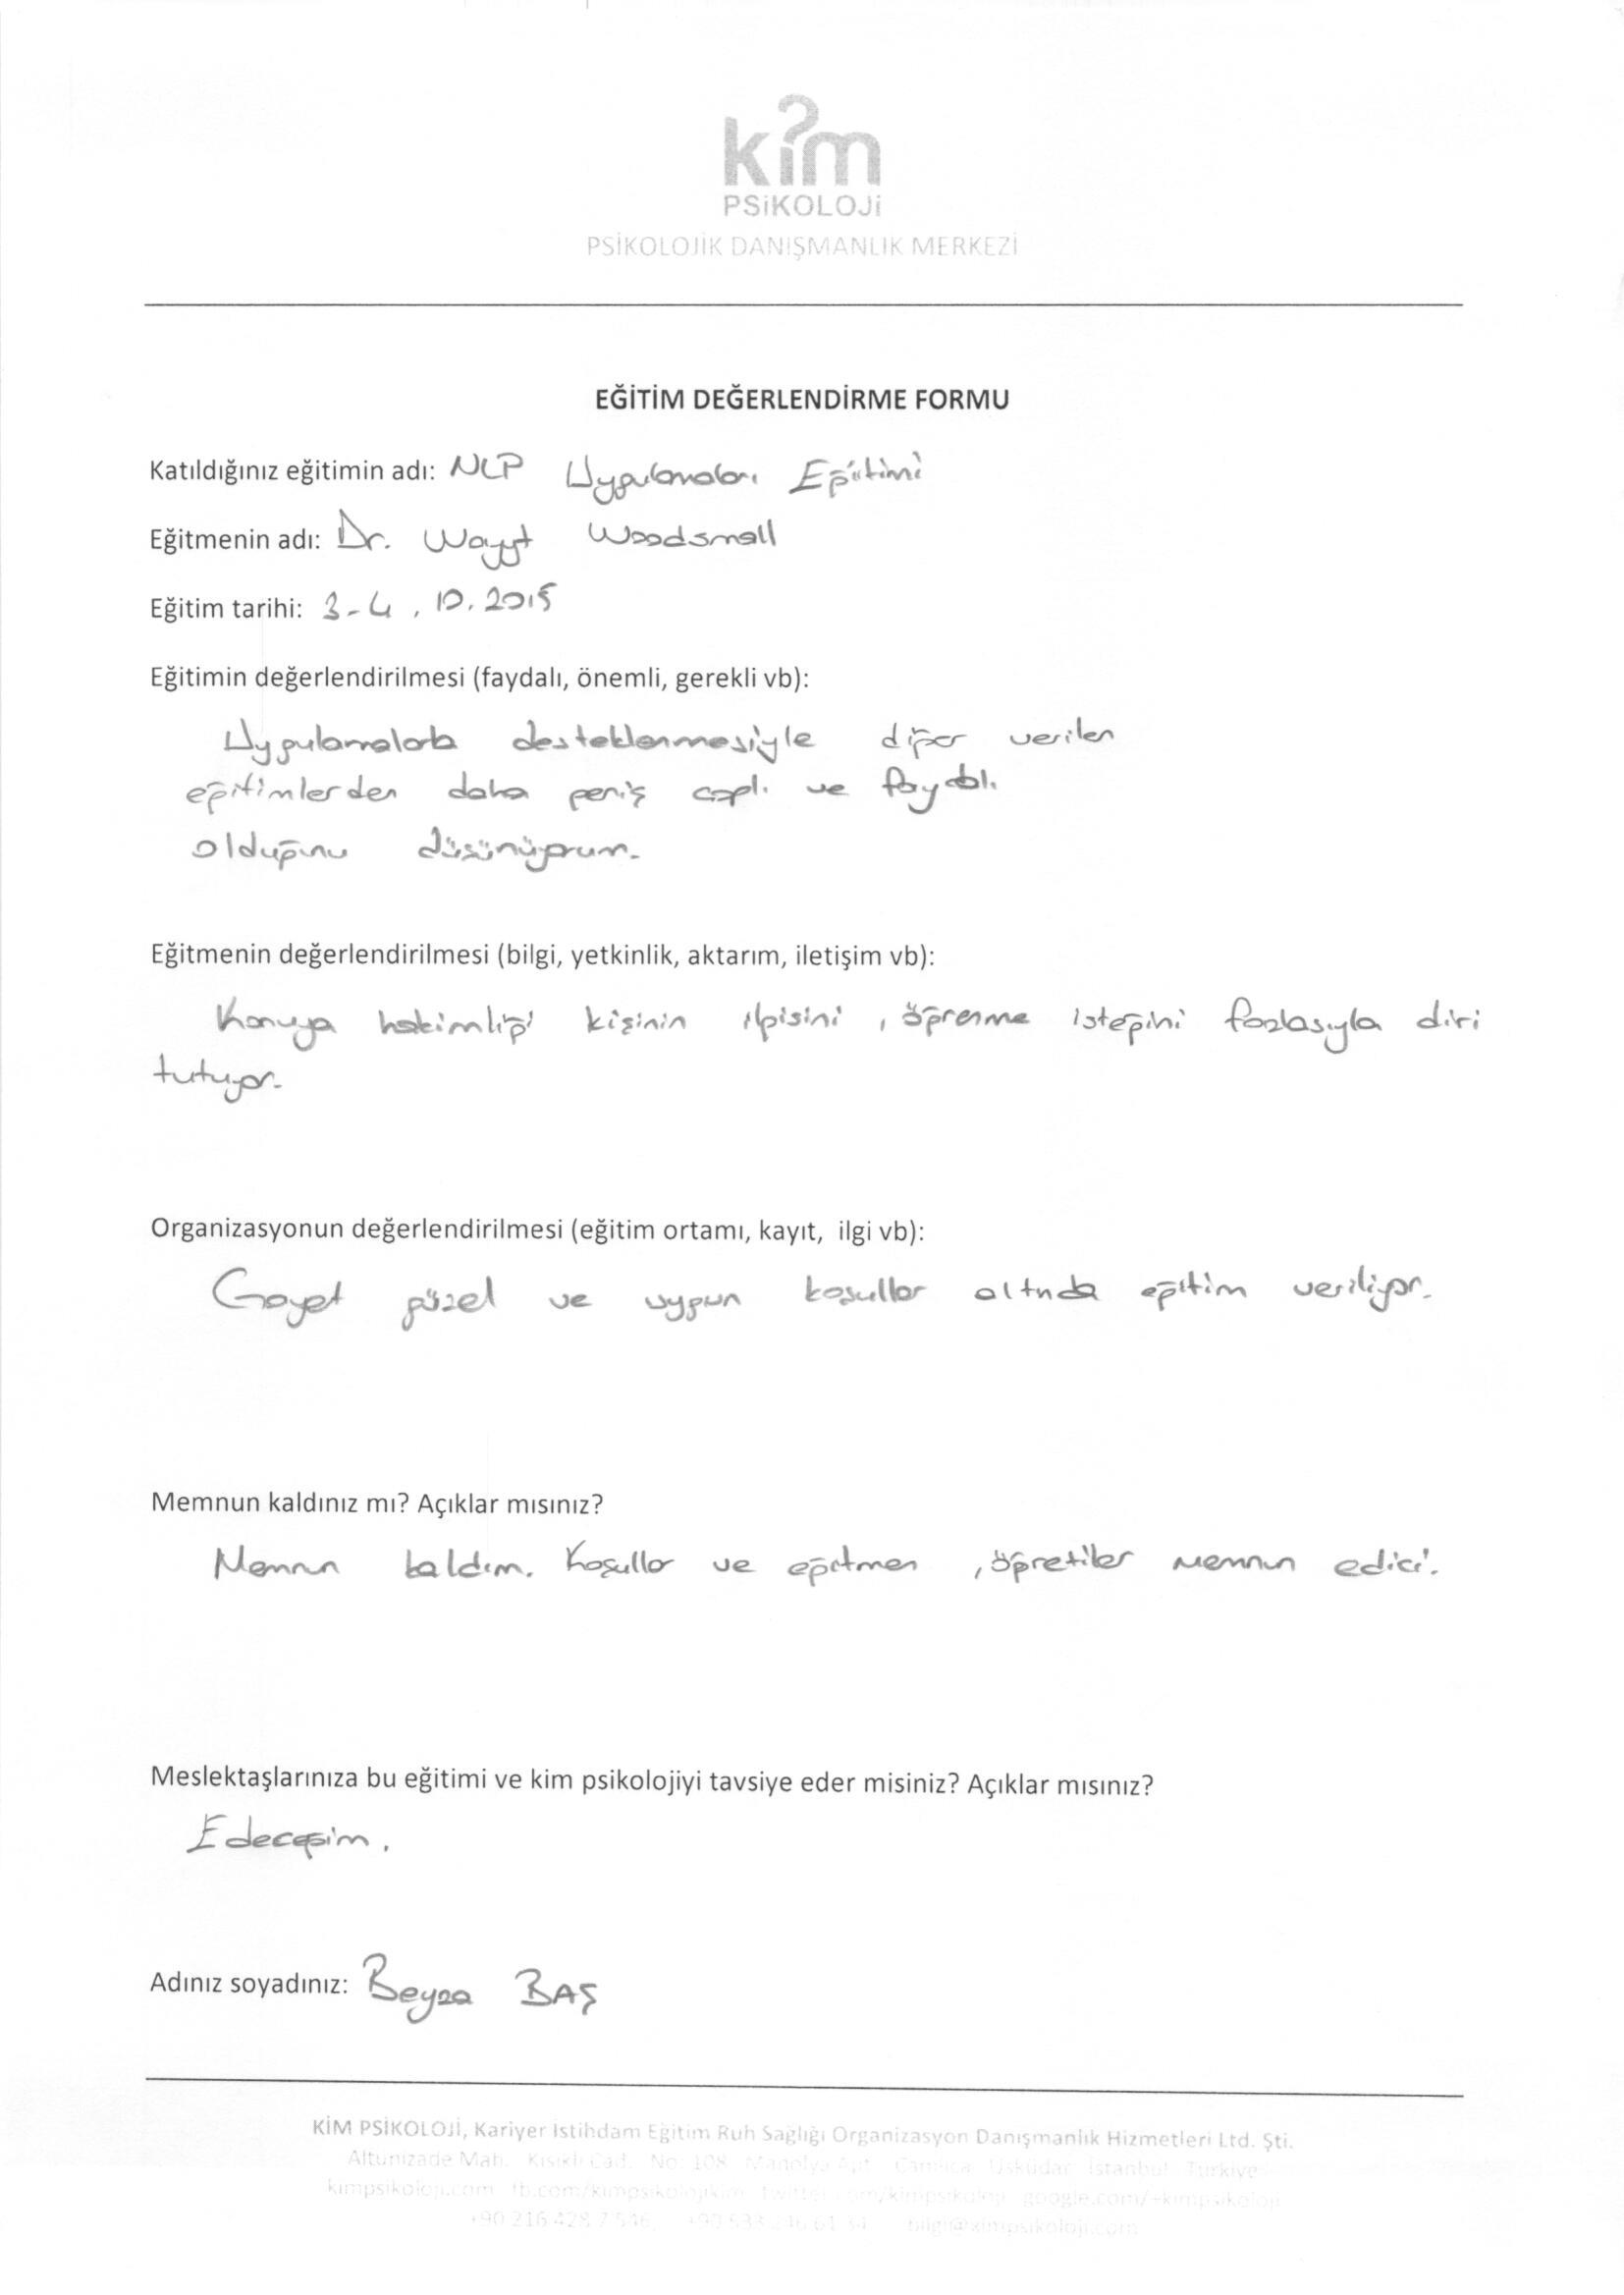 kim
PSiKOLOJi
PSİKOLOJİK DANIŞMANLIK MERKEZİ
EĞİTİM DEĞERLENDİRME FORMU
Katıldığınız eğitimin adı: NLP Uygulamaları Eğitimi
Eğitmenin adı: Dr. Wayyt Woodsmall
Eğitim tarihi: 3-4.10.2015
Eğitimin değerlendirilmesi (faydalı, önemli, gerekli vb):
Uygulamalarla desteklenmesiyle diğer verilen
eğitimlerden daha geniş çaplı ve faydalı
olduğunu düşünüyorum.
Eğitmenin değerlendirilmesi (bilgi, yetkinlik, aktarım, iletişim vb):
Konuya hakimliği kişinin ilgisini, öğrenme isteğini fazlasıyla diri
tutuyor.
Organizasyonun değerlendirilmesi (eğitim ortamı, kayıt, ilgi vb):
Gayet güzel ve uygun koşullar altında eğitim veriliyor.
Memnun kaldınız mı? Açıklar mısınız?
Memnun kaldım. Koşullar ve eğitmen, öğretiler memnun edici.
Meslektaşlarınıza bu eğitimi ve kim psikolojiyi tavsiye eder misiniz? Açıklar mısınız?
Edeceğim.
Adınız soyadınız: Beyza BAŞ
KİM PSİKOLOJİ, Kariyer İstihdam Eğitim Ruh Sağlığı Organizasyon Danışmanlık Hizmetleri Ltd. Şti.
Altunizade Mah. Kısıklı Cad. No: 108 Manolya Apt. Çamlıca Üsküdar İstanbul Türkiye
kimpsikoloji.com fb.com/kimpsikolojikim twitter.com/kimpsikoloji google.com/+kimpsikoloji
bilgi@kimpsikoloji.com